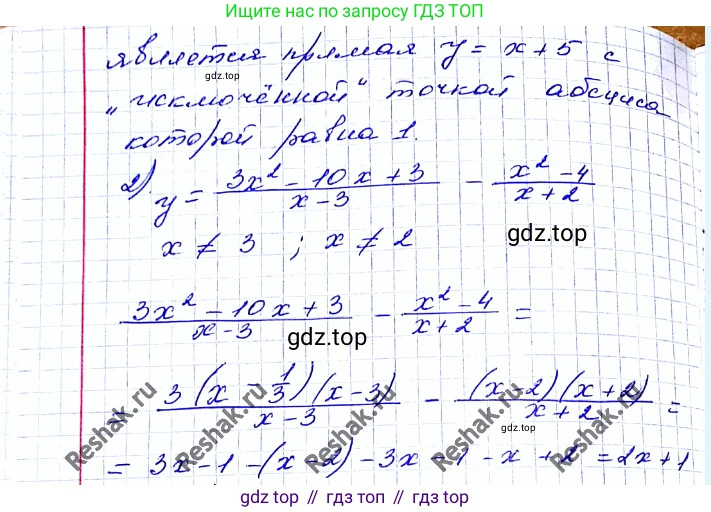 Ищите нас по запросу ГДЗ ТОП
является прямая y = x + 5 с
gdz.top
"исключённой" точкой абсцисса
которой равна 1.
2) y = \frac{3x^2 - 10x + 3}{x - 3} - \frac{x^2 - 4}{x + 2}
x ≠ 3 ; x ≠ 2
gdz.top
\frac{3x^2 - 10x + 3}{x - 3} - \frac{x^2 - 4}{x + 2} =
gdz.top
= \frac{3(x - \frac{1}{3})(x - 3)}{x - 3} - \frac{(x - 2)(x + 2)}{x + 2} =
= 3x - 1 - (x - 2) - 3x - 1 - x + 2 = 2x + 1
Reshak.ru
Reshak.ru
Reshak.ru
Reshak.ru
gdz top // гдз топ // gdz.top